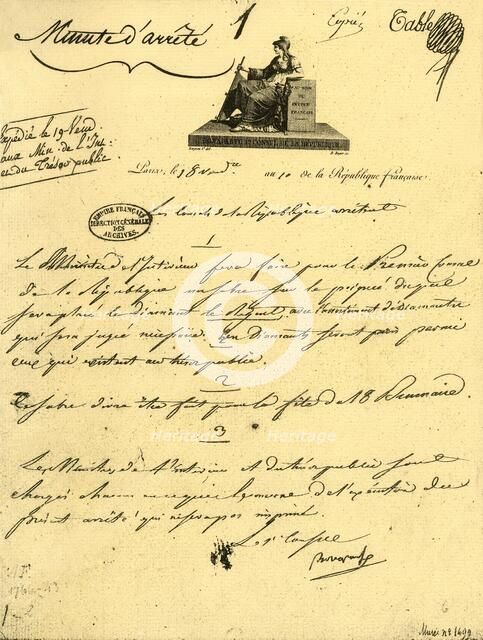 Minute d'arrêté
1
Copié
Table
Expédié le 19 Vend
aux Min. de l'Int.
et du Trésor public
AU NOM
DU
PEUPLE
FRANÇAIS
BONAPARTE 1er CONSUL DE LA RÉPUBLIQUE
Paris, le 18 Vend.re an 10 de la République française.
EMPIRE FRANÇAIS
DIRECTION GÉNÉRALE
DES
ARCHIVES
Les Consuls de la République arrêtent
1
Le Ministre de l'Intérieur fera faire pour le Premier Consul
de la République un sabre sur la poignée duquel
sera placé le diamant le Régent avec l'assortiment de diamants
qui sera jugé nécessaire. Ces Diamants seront pris parmi
ceux qui existent au trésor public.
2
Ce sabre devra être fait pour la fête du 18 Brumaire.
3
Les Ministres de l'Intérieur et du trésor public sont
chargés chacun en ce qui le concerne de l'exécution du
présent arrêté qui ne sera pas imprimé.
Le 1er Consul
Bonaparte
Heritage
Heritage
Musée n° 1499